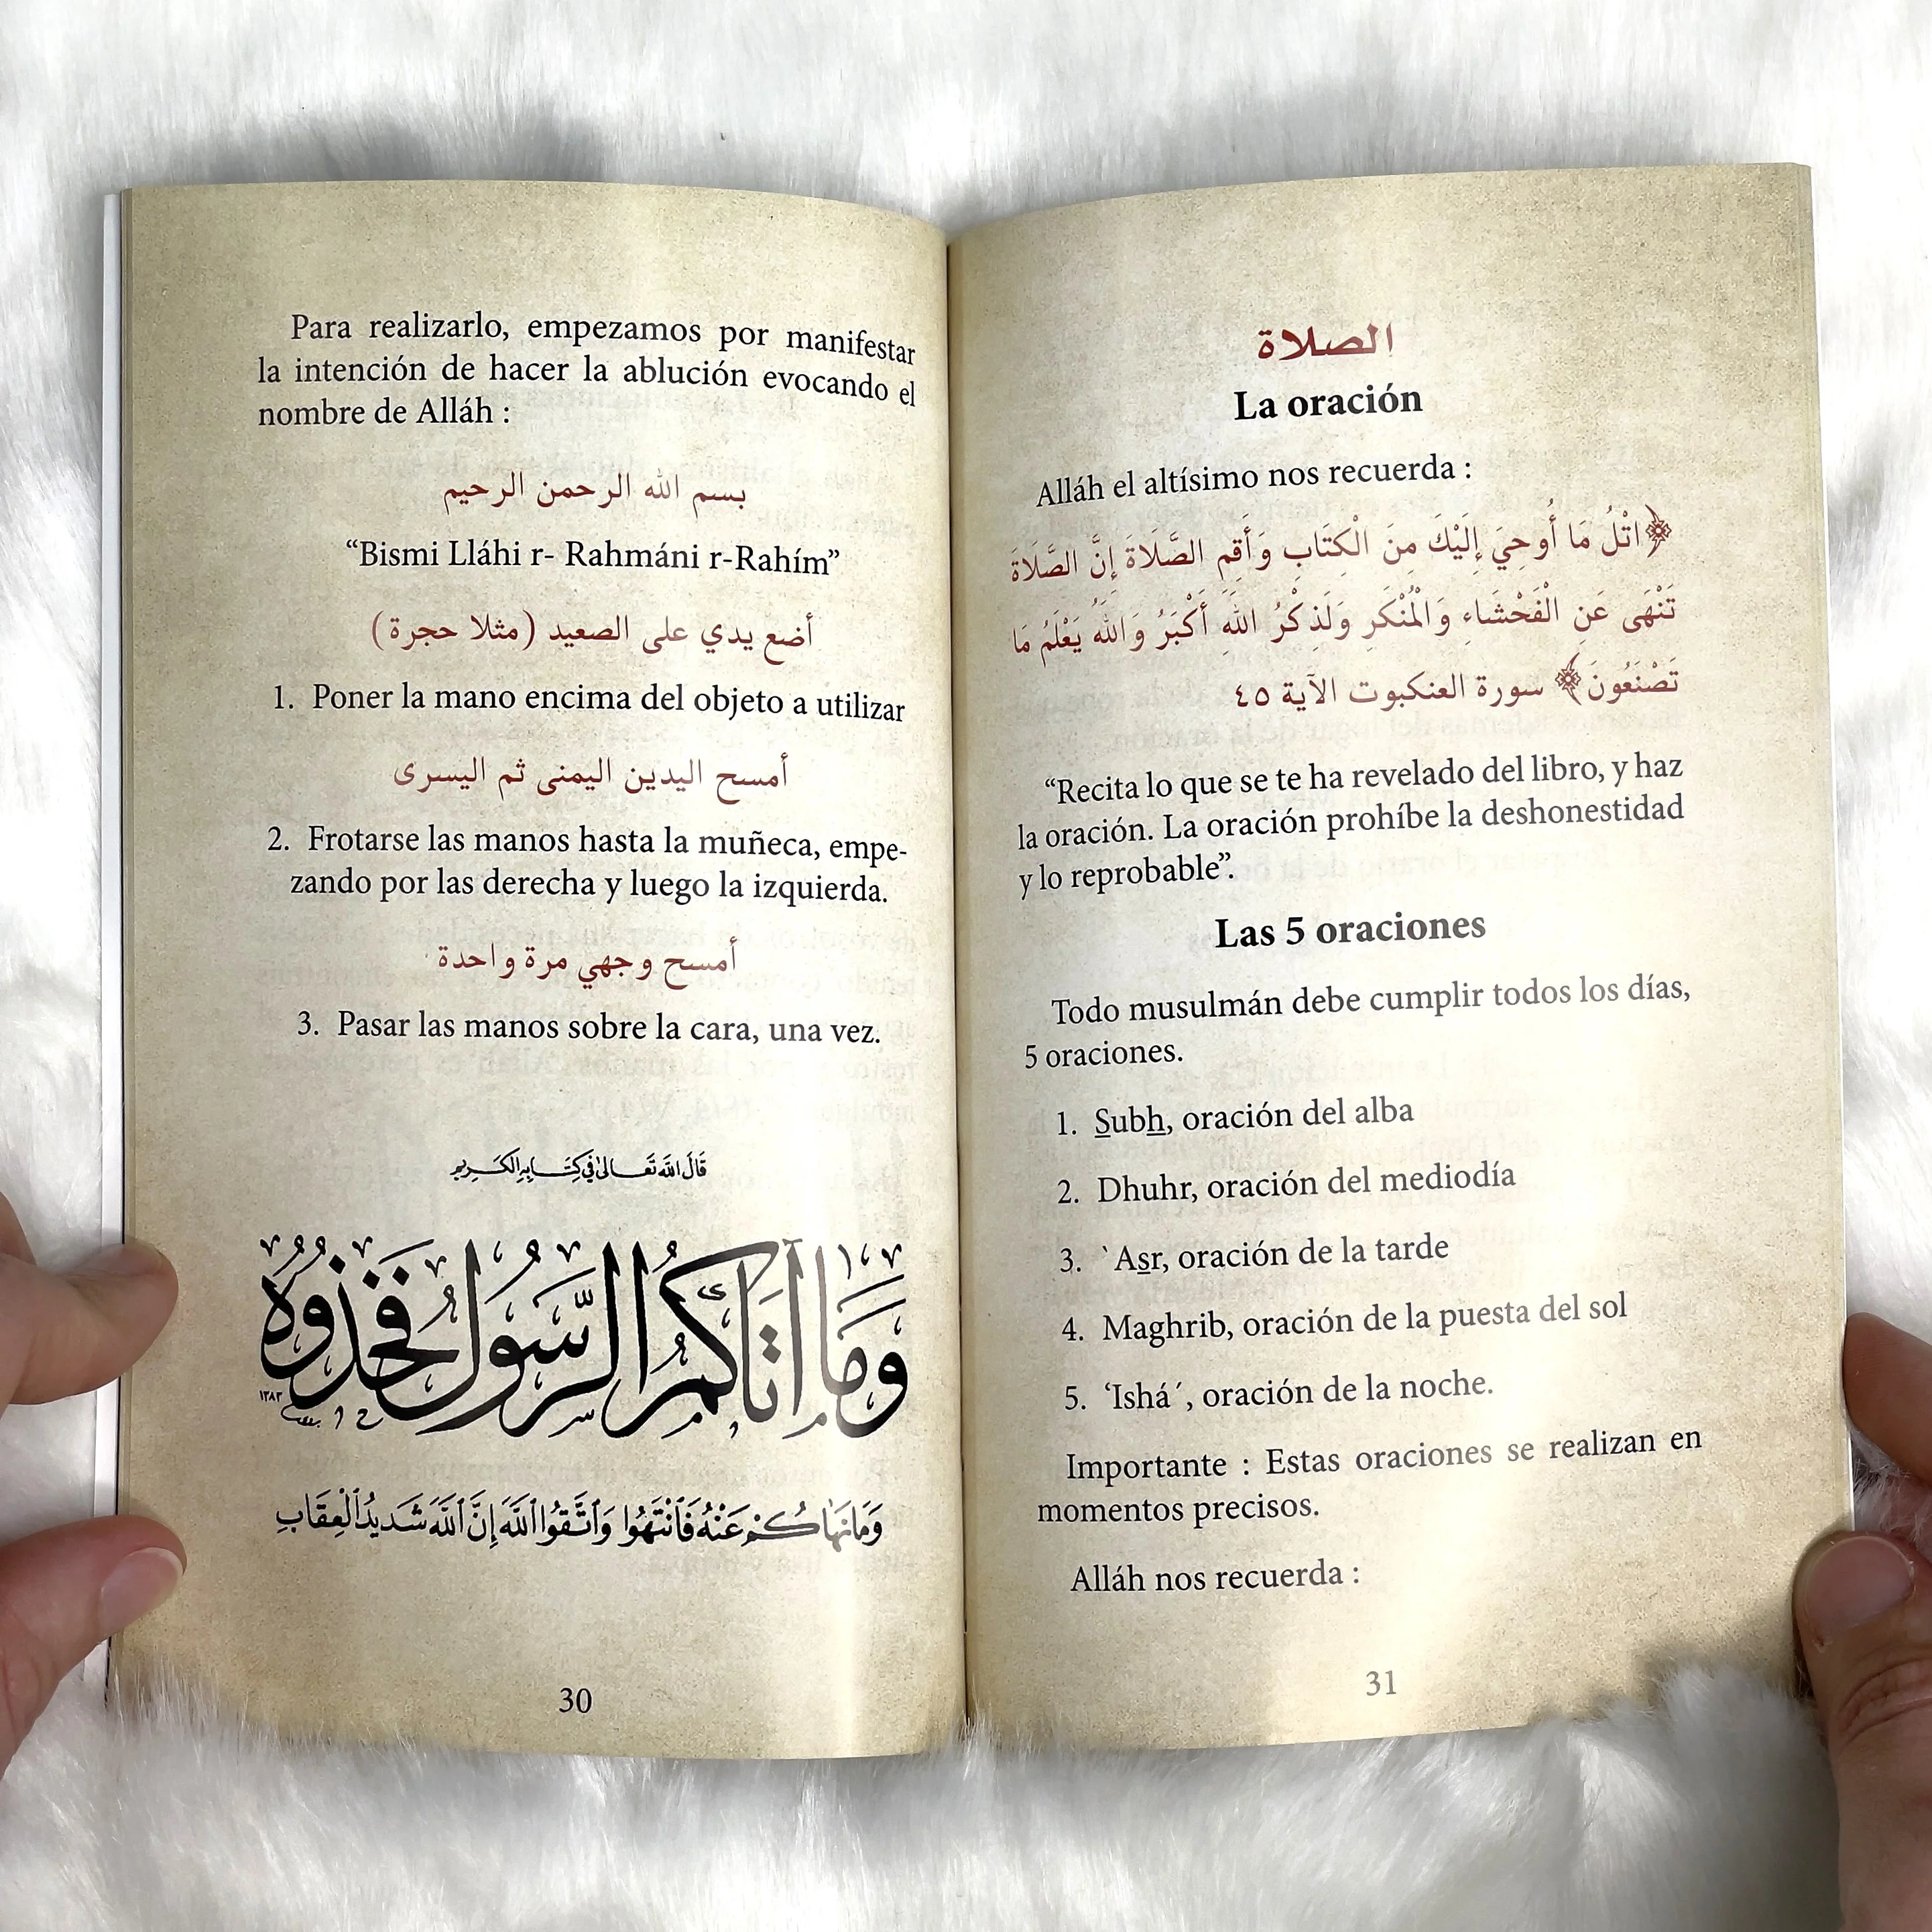 Para realizarlo, empezamos por manifestar
la intención de hacer la ablución evocando el
nombre de Alláh :
بسم الله الرحمن الرحيم
“Bismi Lláhi r- Rahmáni r-Rahím”
أضع يدي على الصعيد (مثلا حجرة)
1. Poner la mano encima del objeto a utilizar
أمسح اليدين اليمنى ثم اليسرى
2. Frotarse las manos hasta la muñeca, empe-
zando por las derecha y luego la izquierda.
أمسح وجهي مرة واحدة
3. Pasar las manos sobre la cara, una vez.
قَالَ اللَّه تَعَالىٰ فِي كِتَابِهِ الكَرِيمِ
وَمَا آتَاكُمُ الرَّسُولُ فَخُذُوهُ
١٣٨٣
وَمَا نَهَاكُمْ عَنْهُ فَٱنْتَهُوا وَٱتَّقُوا ٱللَّهَ إِنَّ ٱللَّهَ شَدِيدُ ٱلْعِقَابِ
30
الصلاة
La oración
Alláh el altísimo nos recuerda :
﴿اتْلُ مَا أُوحِيَ إِلَيْكَ مِنَ الْكِتَابِ وَأَقِمِ الصَّلَاةَ إِنَّ الصَّلَاةَ
تَنْهَى عَنِ الْفَحْشَاءِ وَالْمُنْكَرِ وَلَذِكْرُ اللَّهِ أَكْبَرُ وَاللَّهُ يَعْلَمُ مَا
تَصْنَعُونَ﴾ سورة العنكبوت الآية ٤٥
“Recita lo que se te ha revelado del libro, y haz
la oración. La oración prohíbe la deshonestidad
y lo reprobable”.
Las 5 oraciones
Todo musulmán debe cumplir todos los días,
5 oraciones.
1. Subh, oración del alba
2. Dhuhr, oración del mediodía
3. `Asr, oración de la tarde
4. Maghrib, oración de la puesta del sol
5. ‘Ishá´, oración de la noche.
Importante : Estas oraciones se realizan en
momentos precisos.
Alláh nos recuerda :
31